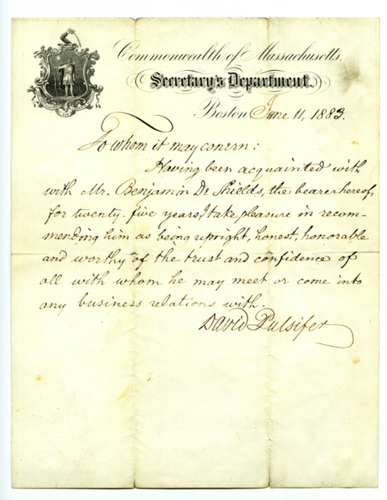 Commonwealth of Massachusetts.
Secretary's Department.
Boston June 11, 1883.
To whom it may concern:
Having been acquainted with
with Mr. Benjamin De Shields, the bearer hereof,
for twenty-five years, I take pleasure in recom-
mending him as being upright, honest, honorable
and worthy of the trust and confidence of
all with whom he may meet or come into
any business relations with.
David Pulsifer